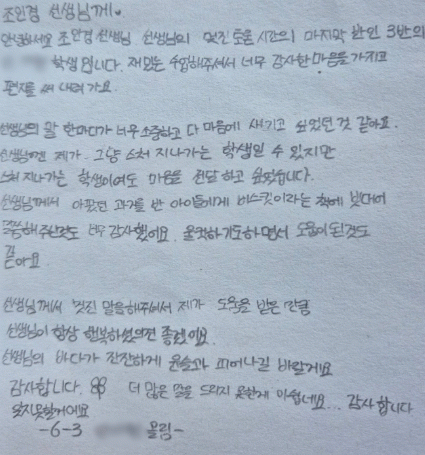 조인경 선생님께♥
안녕하세요 조인경 선생님 선생님의 멋진 도움 시간의 마지막 반인 3반의
학생 입니다. 재밌는 수업해주셔서 너무 감사한 마음을 가지고
편지를 써 내려 가요.
선생님의 말 한마디가 너무 소중하고 다 마음에 새기고 싶었던 것 같아요.
선생님껜 제가 그냥 스쳐 지나가는 학생일 수 있지만
스쳐 지나가는 학생이여도 마음을 전달 하고 싶었습니다.
선생님께서 아팠던 과거를 반 아이들에게 비스킷이라는 책에 빗대어
해주신것도 너무 감사했어요. 울컥하기도하면서 도움이 된것도
같
같아요
선생님께서 멋진 말을해주셔서 제가 도움을 받은 만큼
선생님이 항상 행복하셨으면 좋겠어요.
선생님의 바다가 잔잔하게 윤슬과 피어나길 바랄게요
감사합니다. 더 많은 말을 드리지 못한게 아쉽네요... 감사합니다
잊지못할거에요
-6-3 올림-